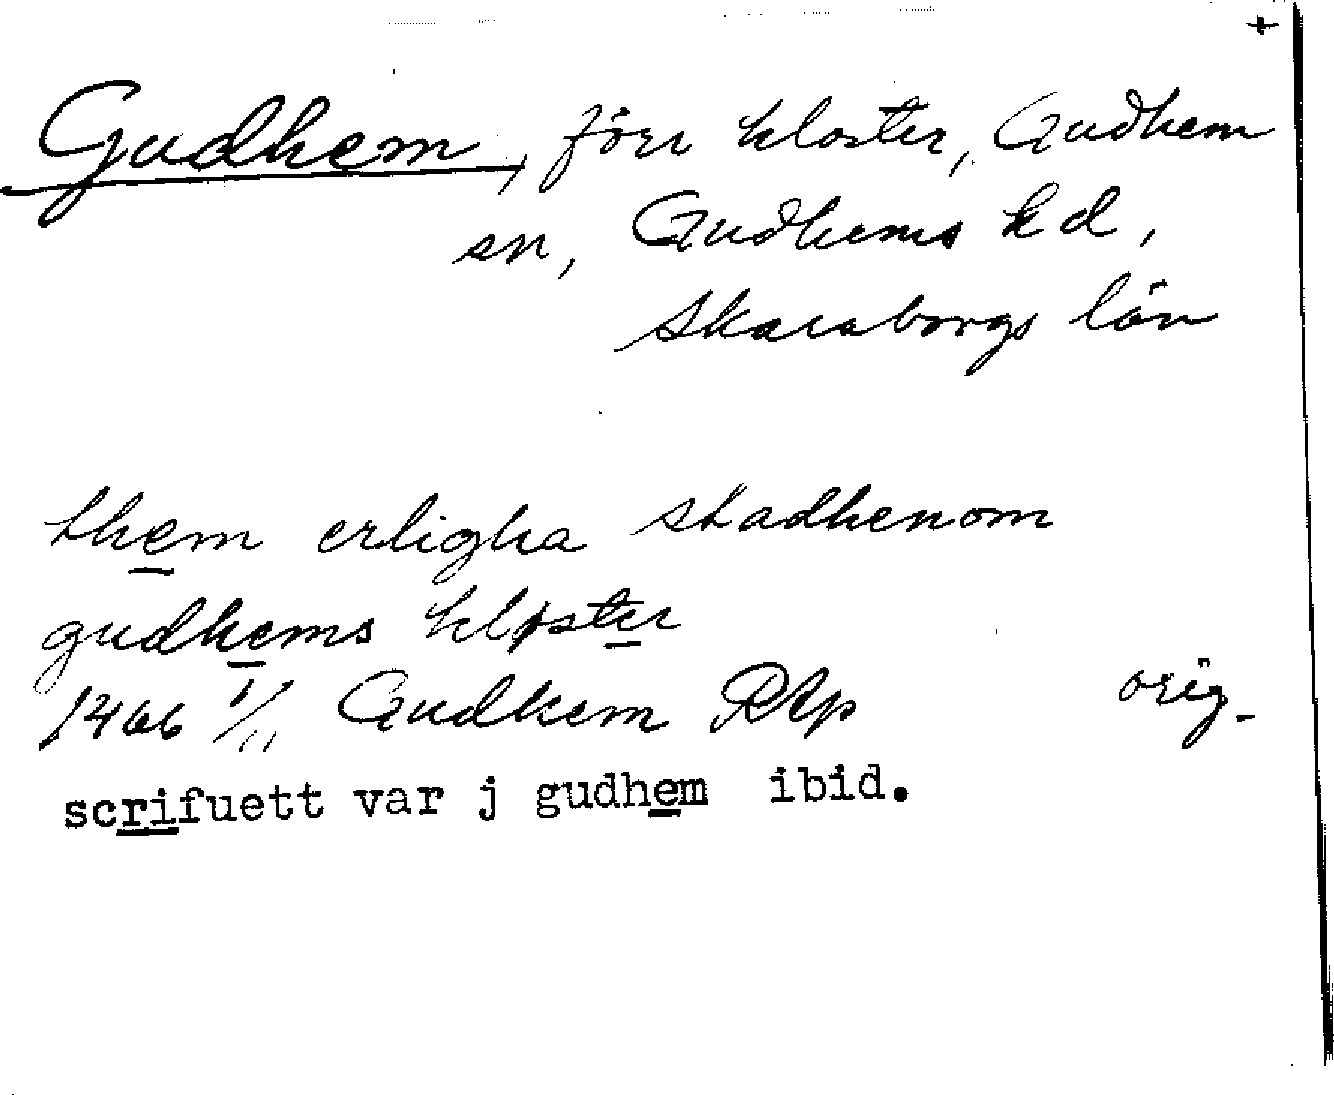 +
Gudhem, förr kloster, Gudhem
sn, Gudhems hd,
Skaraborgs län
them erligha stadhenom
gudhems kløster
1466 1/11 Gudhem RAp orig.
scrifuett var j gudhem ibid.